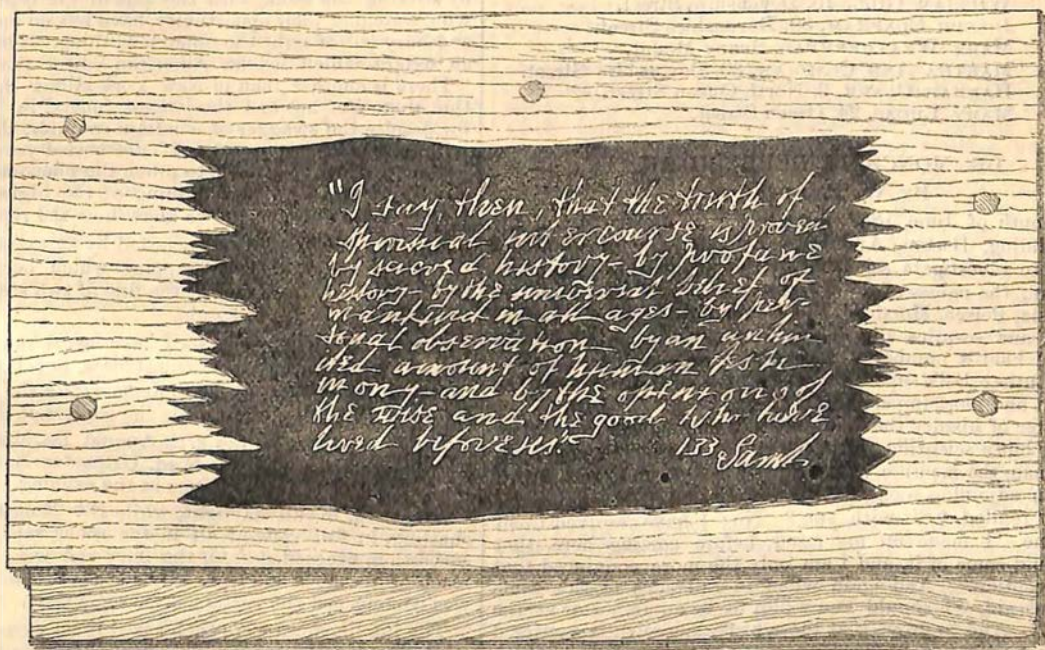 "I say, then, that the truth of
spiritual intercourse is proven
by sacred history - by profane
history - by the universal belief of
mankind in all ages - by per-
sonal observation - by an unlim
ited amount of human testi
mony - and by the opinions of
the wise and the good who have
lived before us."
133 Saml.